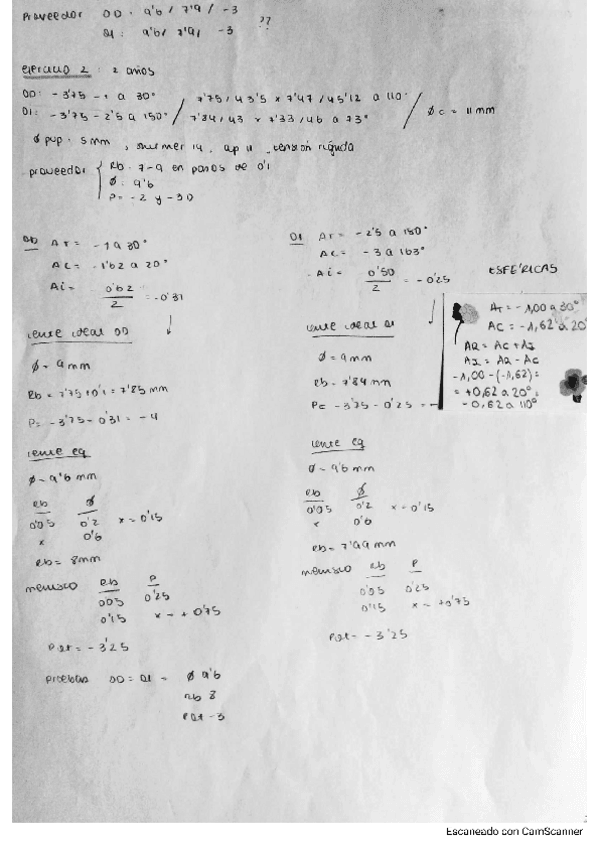 Proveedor OD: 9'6 / 7'9 / -3 ??
OI: 9'6 / 7'9 / -3
ejercicio 2: 2 años
OD: -3'75 -1 a 30° / 7'75 / 43'5 x 7'47 / 45'12 a 110° / Øc = 11 mm
OI: -3'75 -2'5 a 150° / 7'84 / 43 x 7'33 / 46 a 73°
Ø pup. 5mm, 14, ap 11, tensión rígida
proveedor Rb. 7-9 en pasos de 0'1
Ø: 9'6
P = -2 y -30
OD AT = -1 a 30°
AC = -1'62 a 20°
Ai = 0'62 / 2 = -0'31
lente ideal OD
Ø = 9mm
Rb = 7'75 + 0'1 = 7'85 mm
P = -3'75 - 0'31 = -4
lente eq
Ø = 9'6 mm
Rb Ø
0'05 0'2 x = 0'15
x 0'6
Rb = 8mm
menisco Rb P
0'05 0'25
0'15 x = +0'75
Pat = -3'25
Pruebas OD = OI = Ø 9'6
Rb 8
Pat -3
OI AT = -2'5 a 150°
AC = -3 a 163°
Ai = 0'50 / 2 = -0'25
lente ideal OI
Ø = 9mm
Rb = 7'84mm
P = -3'75 - 0'25 = -
lente eq
Ø = 9'6 mm
Rb Ø
0'05 0'2 x = 0'15
x 0'6
Rb = 7'99 mm
menisco Rb P
0'05 0'25
0'15 x = +0'75
Pat = -3'25
ESFÉRICAS
AT = -1,00 a 30°
AC = -1,62 a 20°
AR = AC + AI
AI = AR - AC
-1,00 - (-1,62) =
= +0,62 a 20° =
-0,62 a 110°
Escaneado con CamScanner